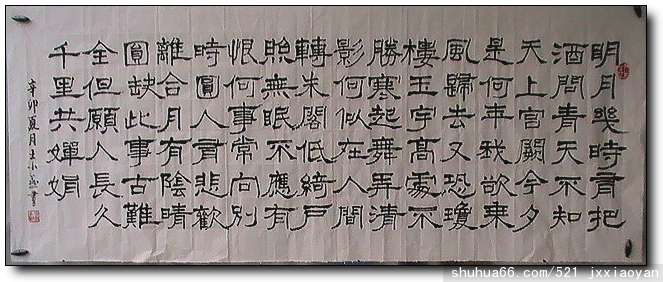 明月幾時有把
酒問青天不知
天上宮闕今夕
是何年我欲乘
風歸去又恐瓊
樓玉宇高處不
勝寒起舞弄清
影何似在人間
轉朱閣低綺戶
照無眠不應有
恨何事常向別
時圓人有悲歡
離合月有陰晴
圓缺此事古難
全但願人長久
千里共嬋娟
辛卯夏月
shuhua66.com/521 jxxiaoyan